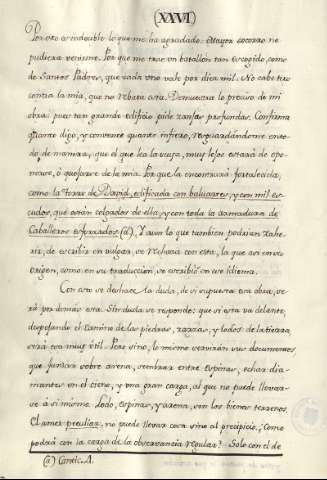 (XXVI)
Por esto es indecible lo que me ha agradado. Mayor socorro no
pudiera venirme. Por que me trae un batallón tan escogido, como
de Santos Padres, que cada uno vale por diez mil. No cabe tra
contra la mia, que no rebata esta. Demuestra lo preciso de mi
obra: pues tan grande edificio pide zanjas profundas. Confirma
quanto digo, y convence quanto infiero, resguardandome
de manera, que el que lea la veuza, muy lejos estará de opo-
nerse, ò quejarse de la mia. Por que la encontrará fortalecida,
como la torre de David, edificada con baluartes, y con mil es-
cudos, que están colgados de ella, y con toda la armadura de
Caballeros esforzados (a). Y aun lo que tambien podrian zahe-
rir, de escribir en vulgar, se rechaza con esta, la que asi en su
origen, como en su traducción, se escribió en ese idioma.
Con esto se deshace la duda, de si supuesta esa obra, se-
rá por demás esta. Sin duda se responde: que si esta va delante,
despejando el camino de las piedras, zarzas, y lodos de la tierra,
será esa muy útil. Pero sino, lo mismo servirán sus documentos,
que fundar sobre arena, sembrar entre espinas, echar dia-
mantes en el cieno, y una gran carga, al que no puede llevar-
se á si mismo. Lodo, espinas, y arena, son los bienes terrenos.
El amor peculiar, no puede llevar cosa sino al precipicio; Como
podrá con la carga de la observancia regular? Solo con el de
(a) Cantic. 4.